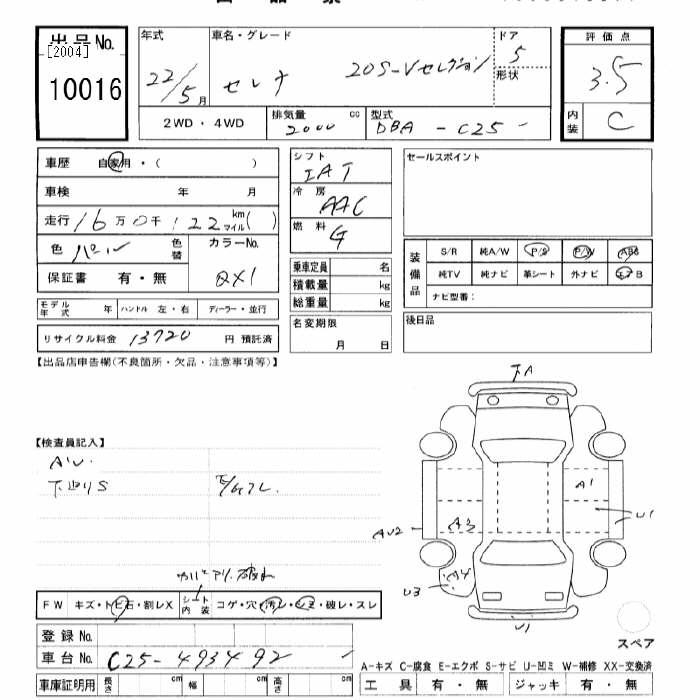 出品No.
[2004]
10016
年式
22/5月
車名・グレード
セレナ 20S-Vセレクション
ドア
5
形状
評価点
3.5
内装
C
2WD・4WD
排気量
2000 cc
型式
DBA - C25 -
車歴 自家用・( )
車検 年 月
走行 16万0千122 km マイル( )
色 パール 色替
カラーNo.
QX1
保証書 有・無
モデル年式 年 ハンドル 左・右 ディーラー・並行
リサイクル料金 13720 円 預託済
シフト
IAT
冷房
AAC
燃料
G
乗車定員 名
積載量 kg
総重量 kg
名変期限
月 日
セールスポイント
装備品
S/R 純A/W P/S P/W ABS
純TV 純ナビ 革シート 外ナビ エアB
ナビ型番:
後日品
【出品店申告欄(不良箇所・欠品・注意事項等)】
【検査員記入】
AU.
下廻りS
A1
U1
AU2
A3
A4
U3
U1
FW キズ・トビ石・割レX シート内装 コゲ・穴・汚レ・シミ・破レ・スレ
登録No.
車台No. C25-493492
車庫証明用 長さ cm 幅 cm 高さ cm
スペア
A-キズ C-腐食 E-エクボ S-サビ U-凹ミ W-補修 XX-交換済
工具 有・無 ジャッキ 有・無